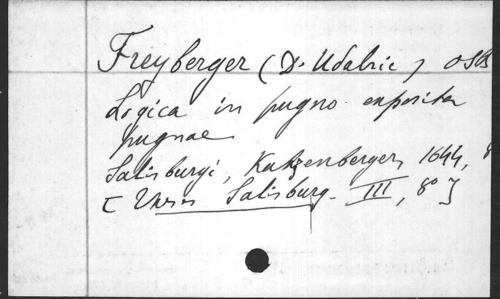 Freyberger (D. Udalric) OSB
Logica in pugno exposita
pugnae
Salisburgi, Katzenberger, 1644, 8
[ Salisburg. III, 8° ]